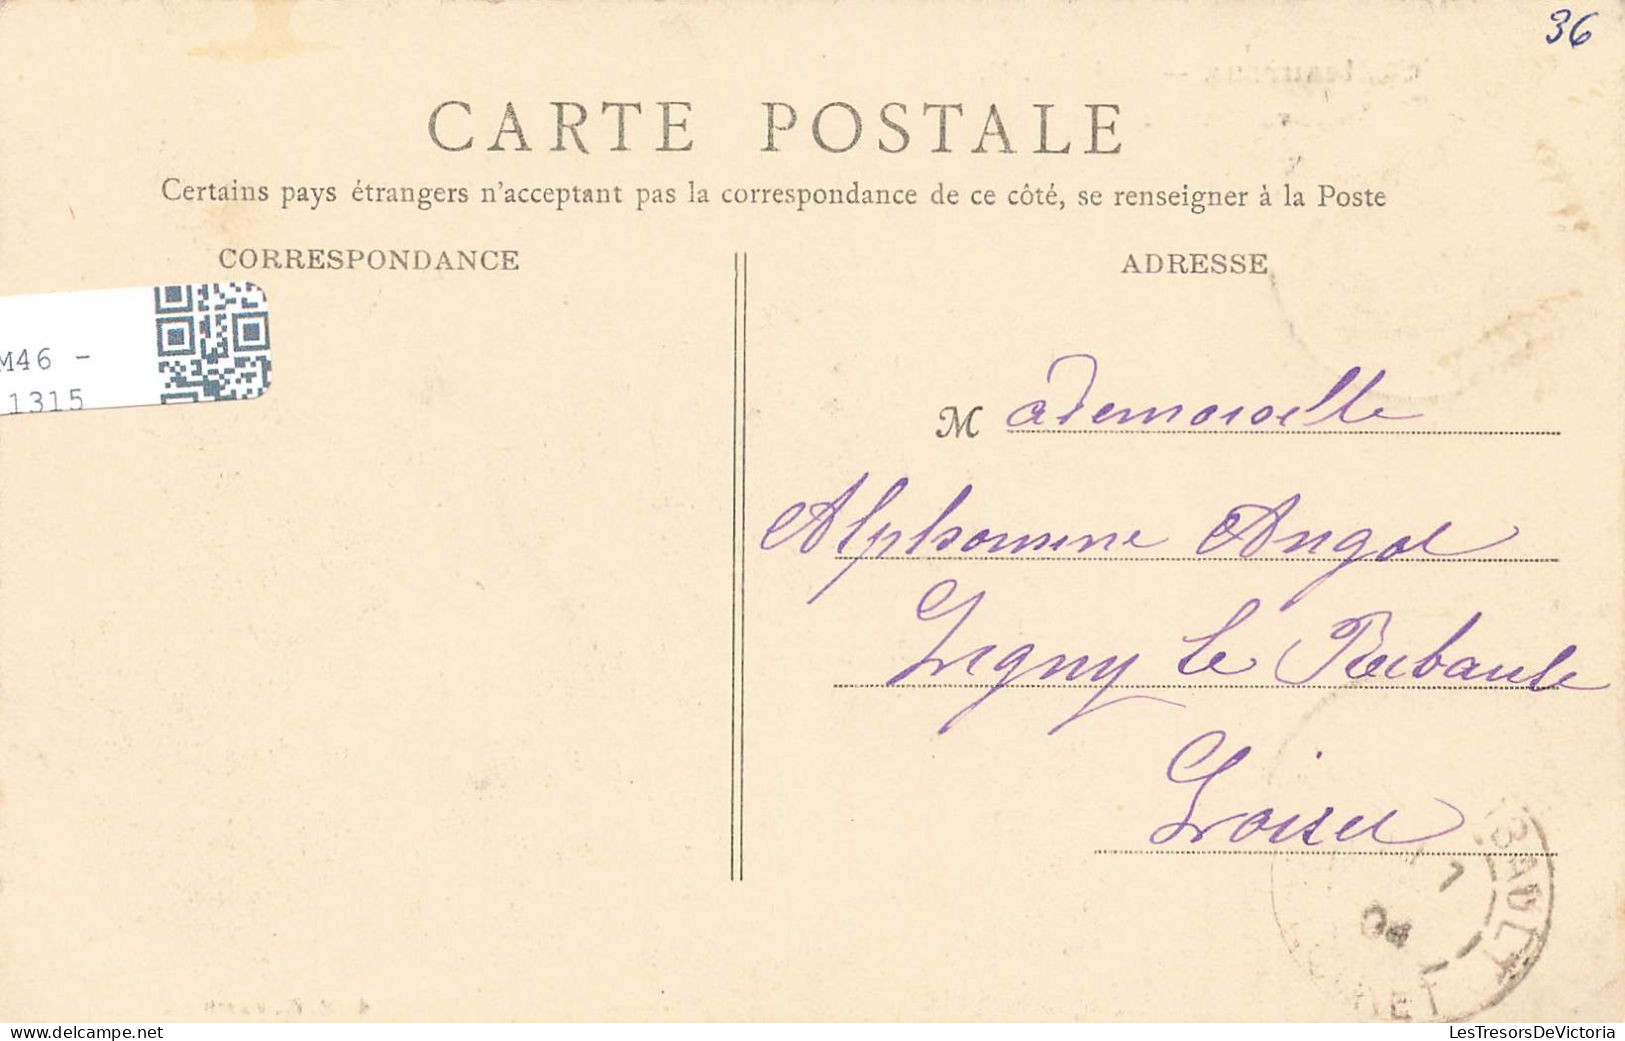 36
CARTE POSTALE
Certains pays étrangers n'acceptant pas la correspondance de ce côté, se renseigner à la Poste
CORRESPONDANCE
ADRESSE
M46 -
1315
Mademoiselle
Alphonsine Angol
Ligny le Ribault
Loiret
BAULT
7
04
LOIRET
LesTresorsDeVictoria